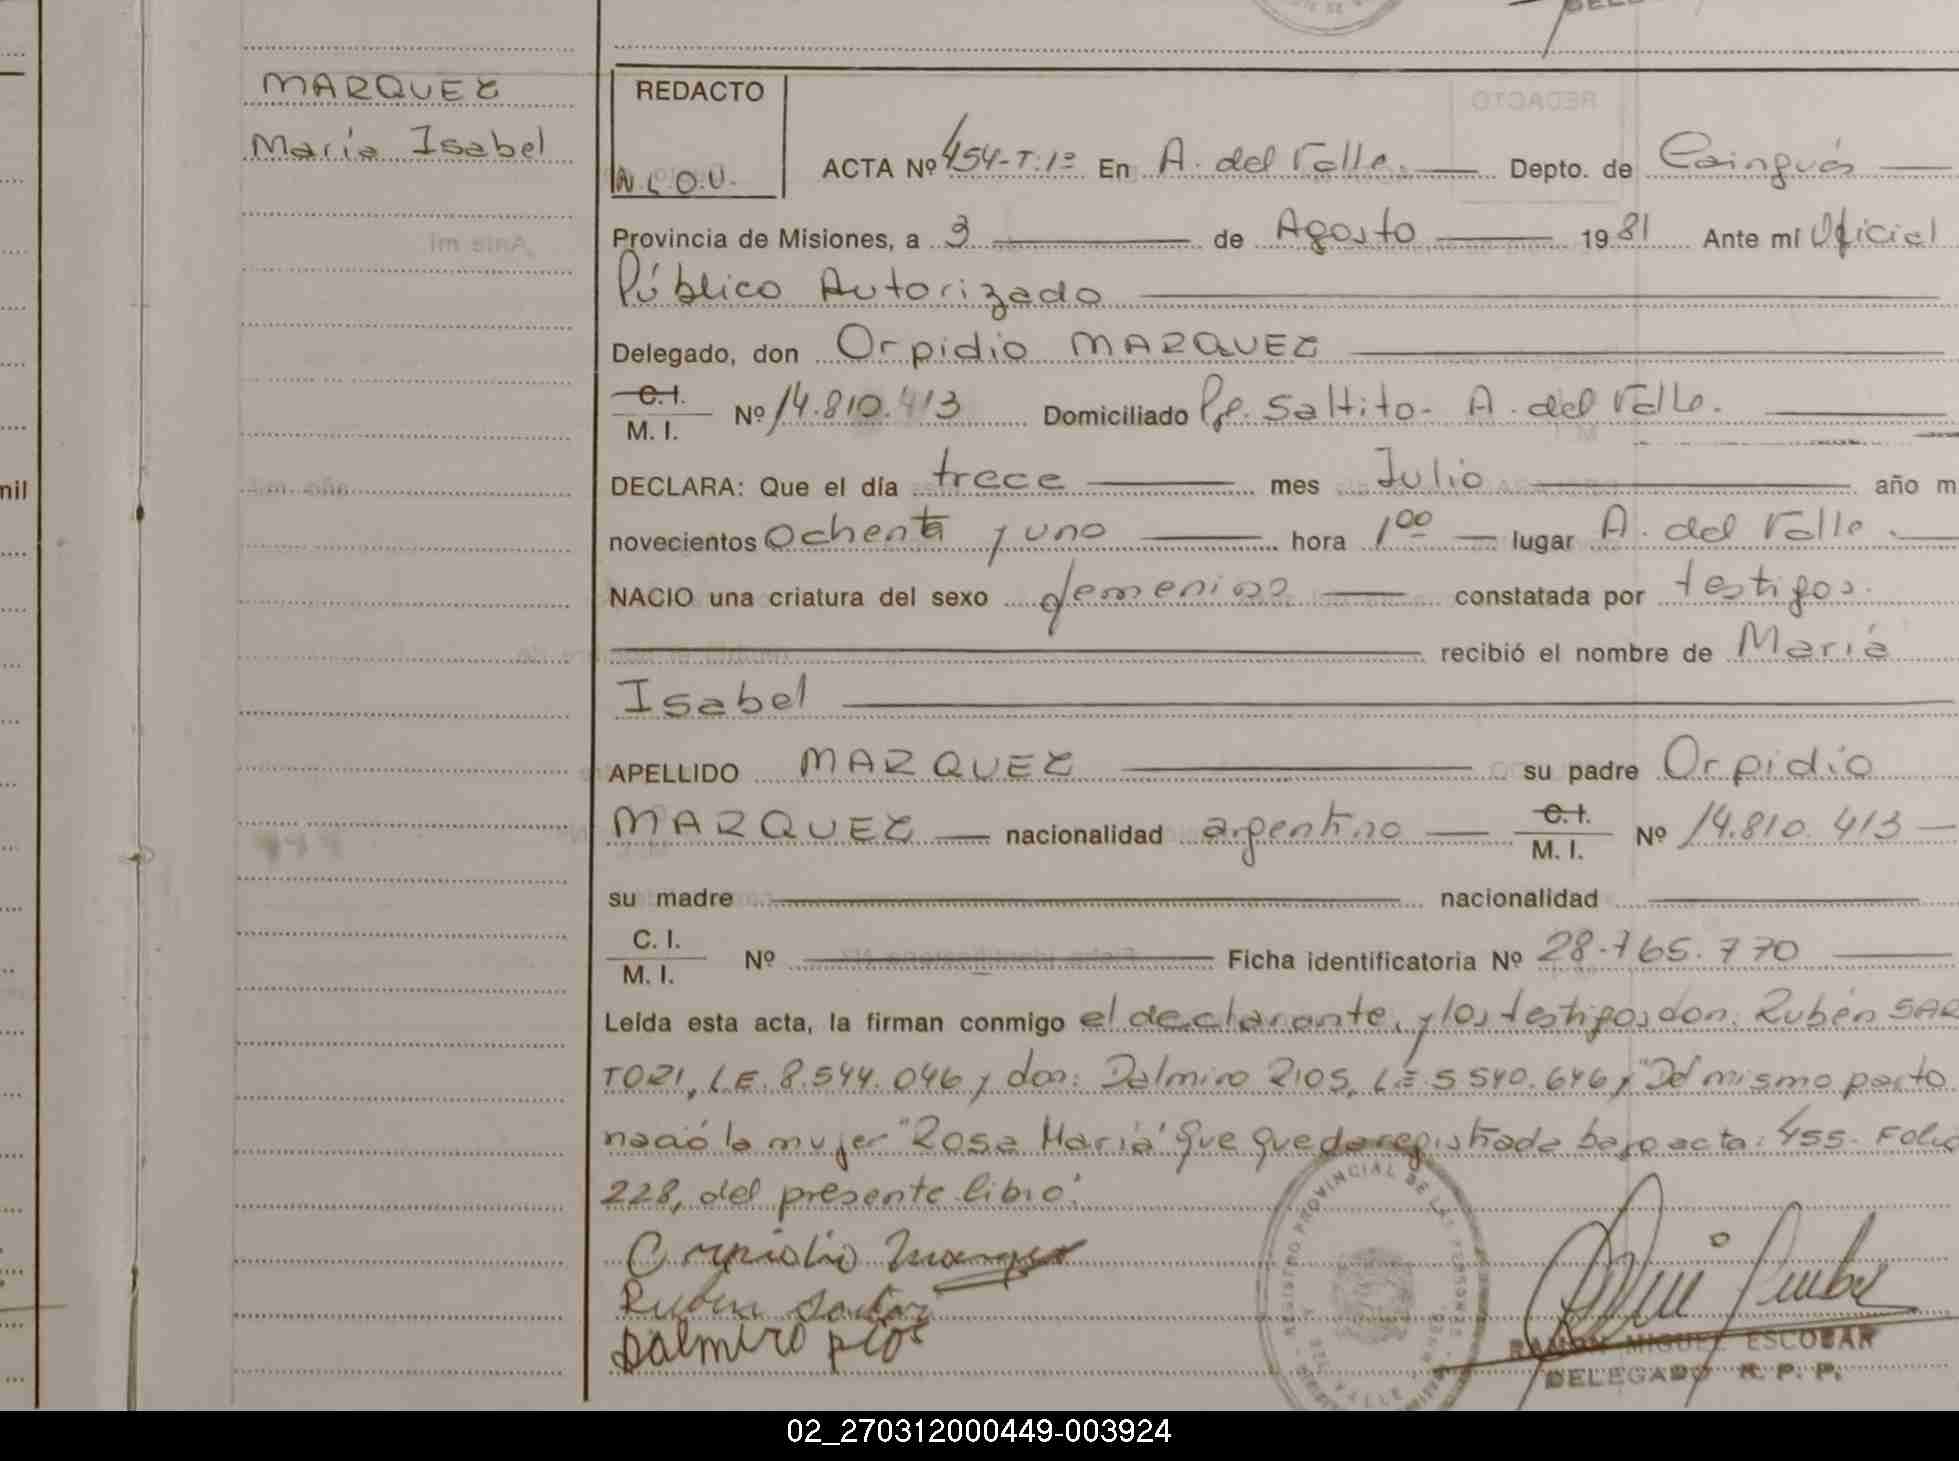 MARQUEZ
María Isabel
REDACTO
ACTA Nº 454-T:1º En A. del Valle. Depto. de Cainguás
Provincia de Misiones, a 3 de Agosto 1981 Ante mí Oficial
Público Autorizado
Delegado, don Orpidio MARQUEZ
C.I.
M. I. Nº 14.810.413 Domiciliado Pje. Saltito - A. del Valle.
DECLARA: Que el día trece mes Julio año m
novecientos Ochenta y uno hora 1ºº lugar A. del Valle
NACIO una criatura del sexo femenino constatada por testigos.
recibió el nombre de María
Isabel
APELLIDO MARQUEZ su padre Orpidio
MARQUEZ nacionalidad argentino C.I. M. I. Nº 14.810.413
su madre nacionalidad
C. I.
M. I. Nº Ficha identificatoria Nº 28.765.770
Leída esta acta, la firman conmigo el declarante, y los testigos don: Rubén SAR
TORI, L.E. 8.544.046 y don: Dalmiro RIOS, L.E 5.540.646, "Del mismo parto
nació la mujer "Rosa María" que queda registrada bajo acta: 455. Folio
228, del presente libro".
Orpidio Marquez
Ruben
Dalmiro Rios
REGISTRO PROVINCIAL DE LAS PERSONAS
RAMON MIGUEL ESCOBAR
DELEGADO R. P. P.
mil
02_270312000449-003924